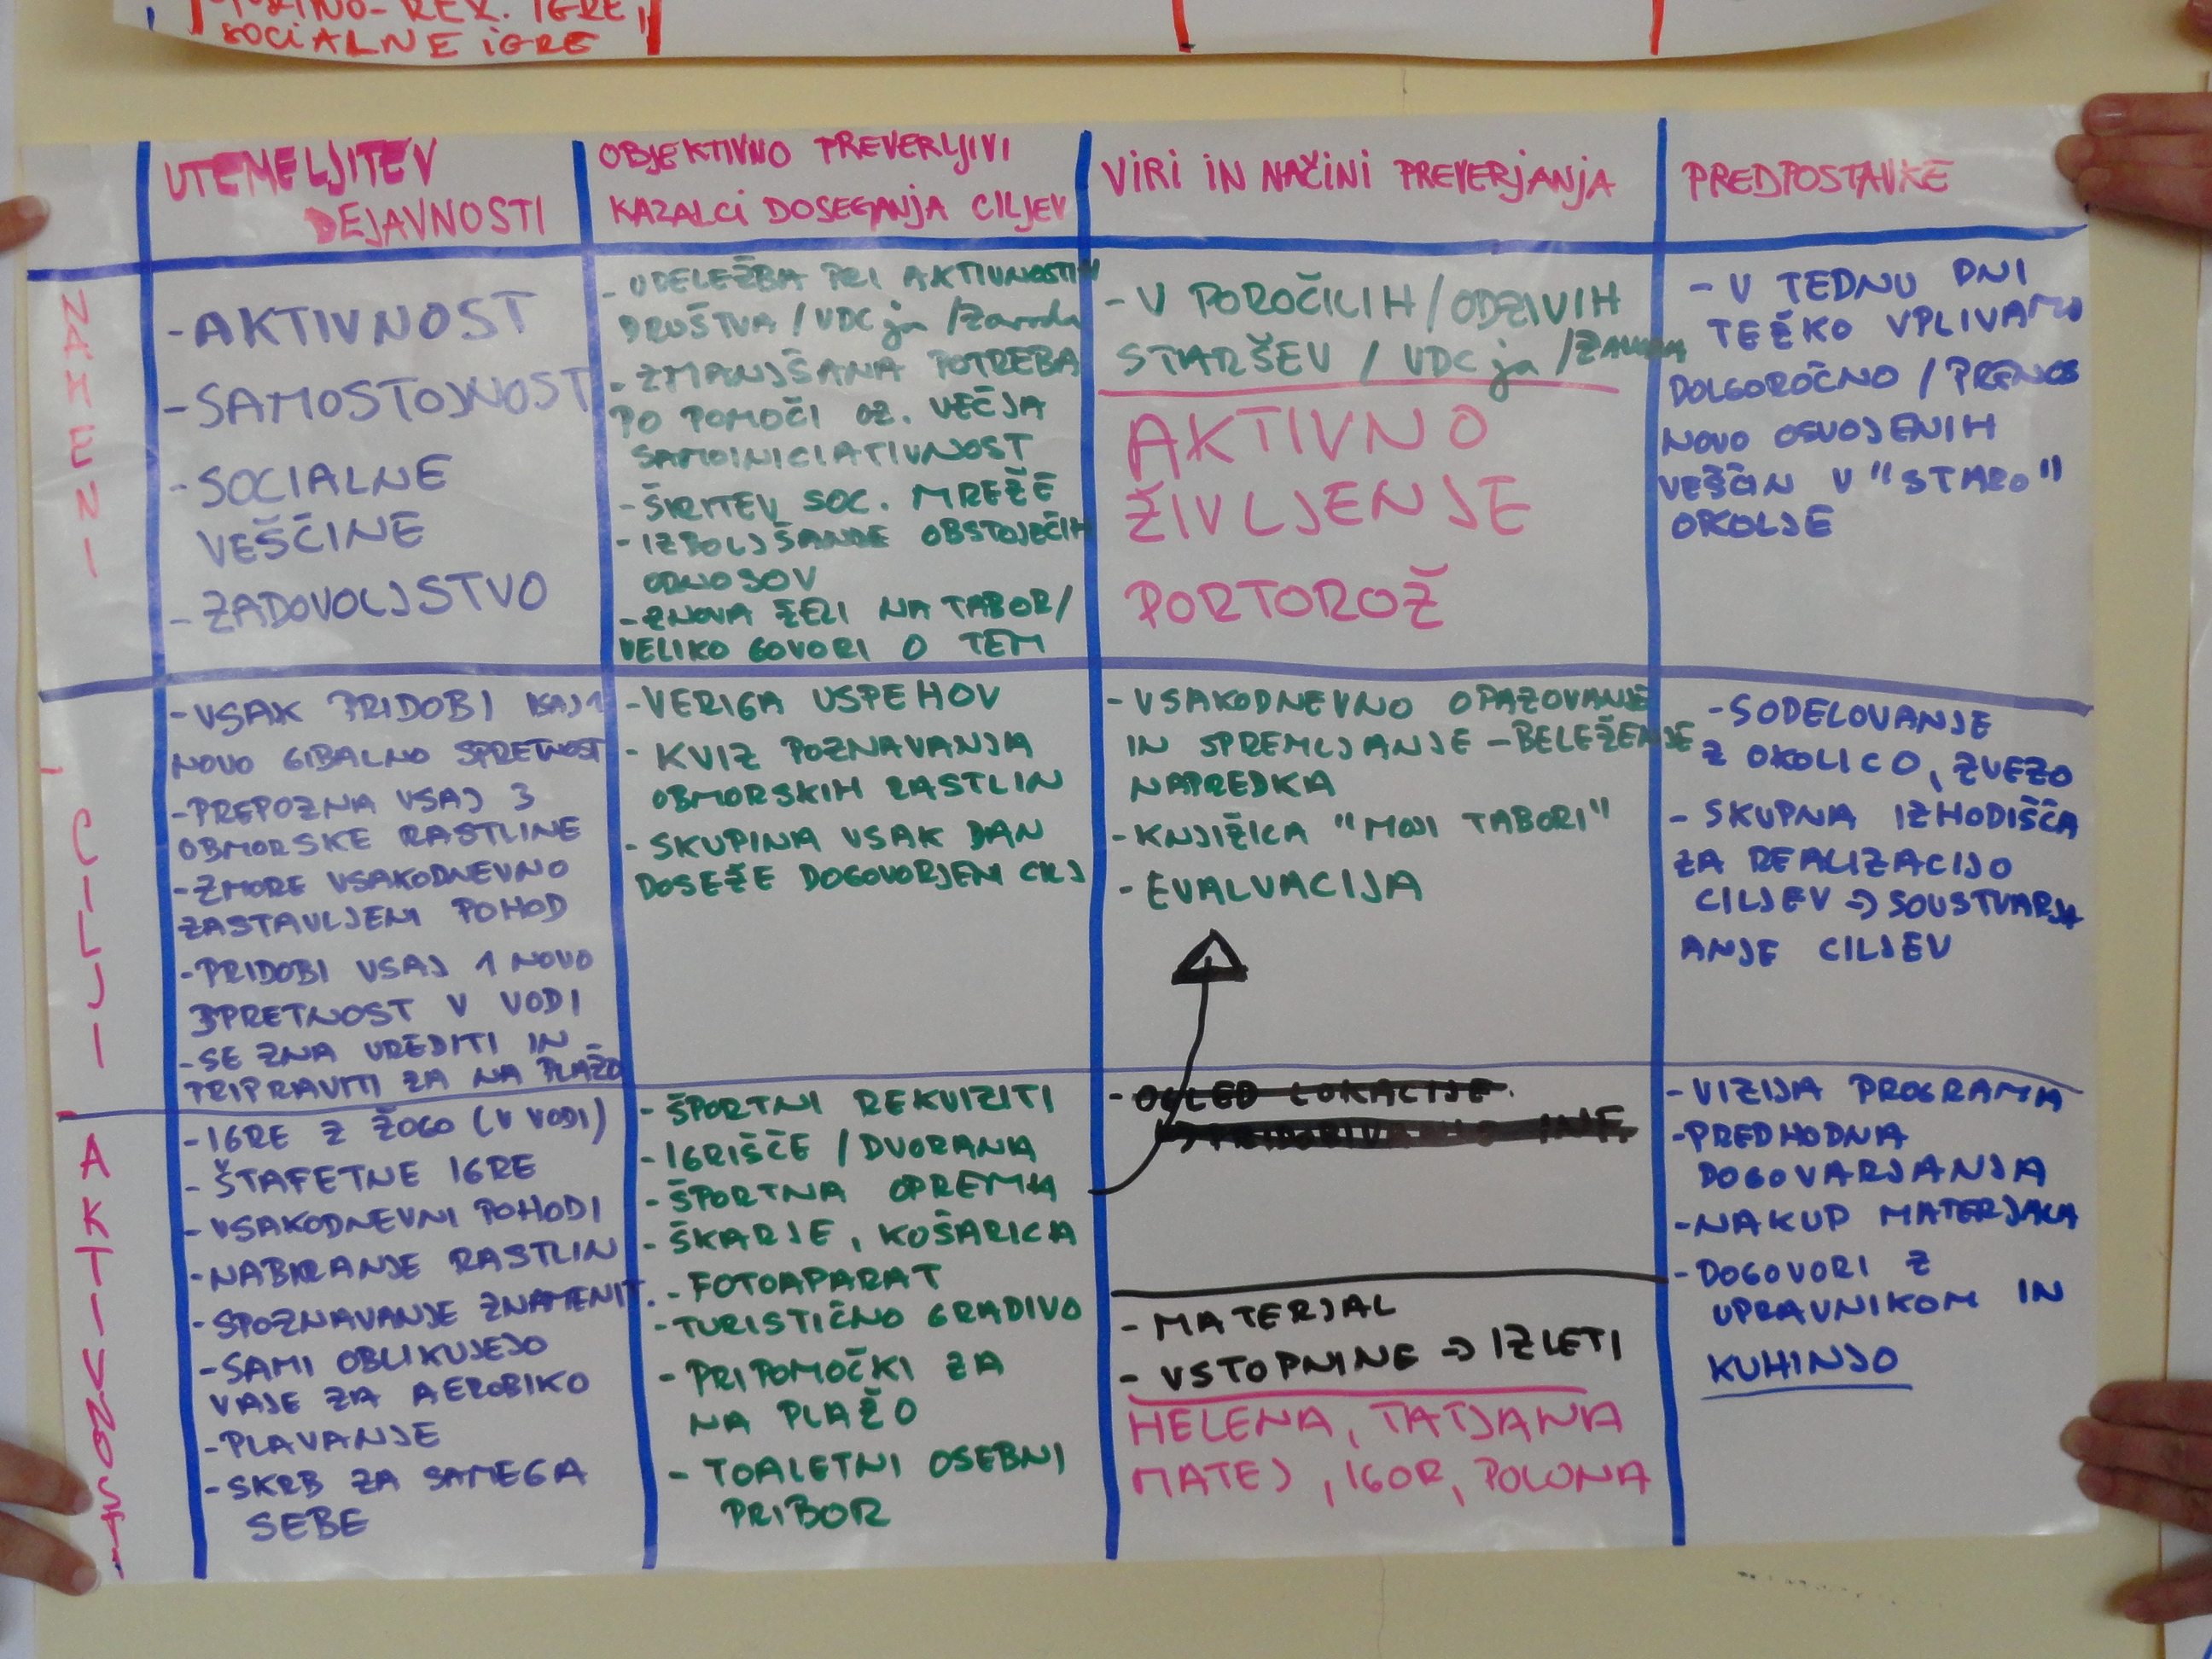 SOCIALNE IGRE
UTEMELJITEV
DEJAVNOSTI
OBJEKTIVNO PREVERLJIVI
KAZALCI DOSEGANJA CILJEV
VIRI IN NAČINI PREVERJANJA
PREDPOSTAVKE
NAMENI
- AKTIVNOST
- SAMOSTOJNOST
- SOCIALNE
VEŠČINE
- ZADOVOLJSTVO
- UDELEŽBA PRI AKTIVNOSTIH
DRUŠTVA / VDC ja / Zavoda
- ZMANJŠANA POTREBA
PO POMOČI OZ. VEČJA
SAMOINICIATIVNOST
- ŠIRITEV SOC. MREŽE
- IZBOLJŠANJE OBSTOJEČIH
ODNOSOV
- ZNOVA ŽELI NA TABOR/
VELIKO GOVORI O TEM
- V POROČILIH / ODZIVIH
STARŠEV / VDC ja / Zavoda
AKTIVNO
ŽIVLJENJE
PORTOROŽ
- V TEDNU DNI
TEŽKO VPLIVAMO
DOLGOROČNO / PRENOS
NOVO OSVOJENIH
VEŠČIN V "STARO"
OKOLJE
CILJI
- VSAK PRIDOBI VSAJ 1
NOVO GIBALNO SPRETNOST
- PREPOZNA VSAJ 3
OBMORSKE RASTLINE
- ZMORE VSAKODNEVNO
ZASTAVLJENI POHOD
- PRIDOBI VSAJ 1 NOVO
SPRETNOST V VODI
- SE ZNA UREDITI IN
PRIPRAVITI ZA NA PLAŽO
- VERIGA USPEHOV
- KVIZ POZNAVANJA
OBMORSKIH RASTLIN
- SKUPINA VSAK DAN
DOSEŽE DOGOVORJENI CILJ
- VSAKODNEVNO OPAZOVANJE
IN SPREMLJANJE - BELEŽENJE
NAPREDKA
- KNJIŽICA "MOJI TABORI"
- EVALVACIJA
- SODELOVANJE
Z OKOLICO, ZVEZO
- SKUPNA IZHODIŠČA
ZA REALIZACIJO
CILJEV → SOUSTVARJA
ANJE CILJEV
AKTIVNOSTI
- IGRE Z ŽOGO (V VODI)
- ŠTAFETNE IGRE
- VSAKODNEVNI POHODI
- NABIRANJE RASTLIN
- SPOZNAVANJE ZNAMENIT.
- SAMI OBLIKUJEJO
VAJE ZA AEROBIKO
- PLAVANJE
- SKRB ZA SAMEGA
SEBE
- ŠPORTNI REKVIZITI
- IGRIŠČE / DVORANA
- ŠPORTNA OPREMA
- ŠKARJE, KOŠARICA
- FOTOAPARAT
- TURISTIČNO GRADIVO
- PRIPOMOČKI ZA
NA PLAŽO
- TOALETNI OSEBNI
PRIBOR
- OGLED LOKACIJE.
- MATERJAL
- VSTOPNINE → IZLETI
HELENA, TATJANA
MATEJ, IGOR, POLONA
- VIZIJA PROGRAMA
- PREDHODNA
DOGOVARJANJA
- NAKUP MATERJALA
- DOGOVORI Z
UPRAVNIKOM IN
KUHINJO